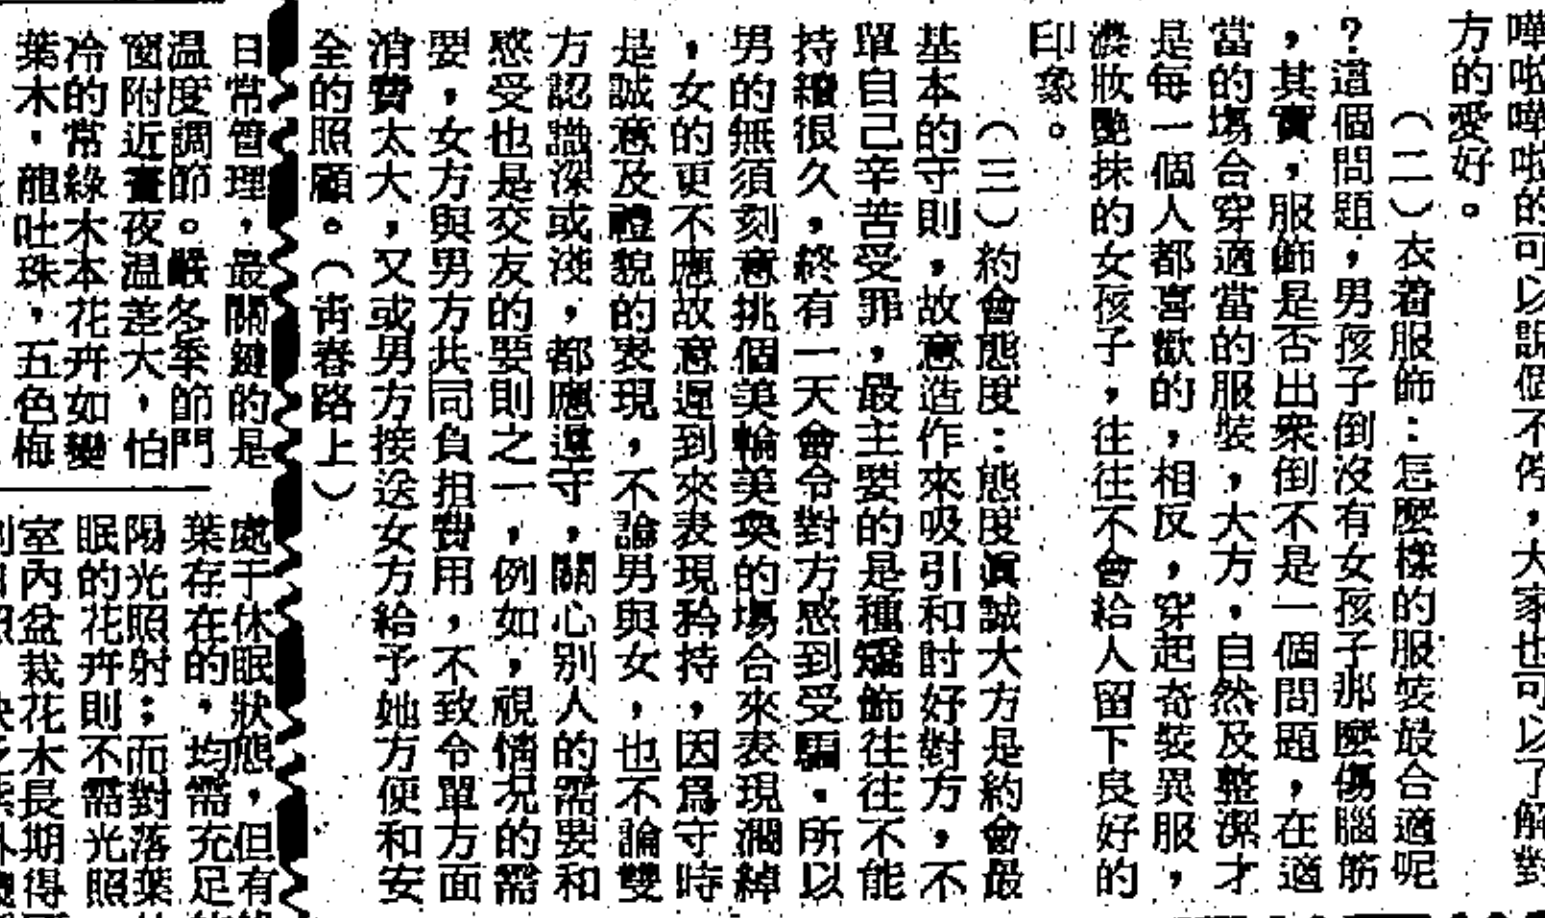 嘩啦嘩啦的可以說個不停，大家也可以了解對
方的愛好。
（二）衣着服飾：怎麼樣的服裝最合適呢
？這個問題，男孩子倒沒有女孩子那麼傷腦筋
，其實，服飾是否出衆倒不是一個問題，在適
當的場合穿適當的服裝，大方，自然及整潔才
是每一個人都喜歡的，相反，穿起奇裝異服，
濃妝艷抹的女孩子，往往不會給人留下良好的
印象。
（三）約會態度：態度眞誠大方是約會最
基本的守則，故意造作來吸引和討好對方，不
單自己辛苦受罪，最主要的是種矯飾往往不能
持續很久，終有一天會令對方感到受騙。所以
男的無須刻意挑個美輪美奐的場合來表現濶綽
，女的更不應故意遲到來表現矜持，因爲守時
是誠意及禮貌的表現，不論男與女，也不論雙
方認識深或淺，都應遵守，關心別人的需要和
感受也是交友的要則之一，例如，視情況的需
要，女方與男方共同負担費用，不致令單方面
消費太大，又或男方接送女方給予她方便和安
全的照顧。（靑春路上）
日常管理，最關鍵的是
温度調節。嚴冬季節門
窗附近晝夜温差大，怕
冷的常綠木本花卉如變
葉木，龍吐珠，五色梅
處于休眠狀態，但有
葉存在的，均需充足
陽光照射；而對落葉
眠的花卉則不需光照
室內盆栽花木長期得